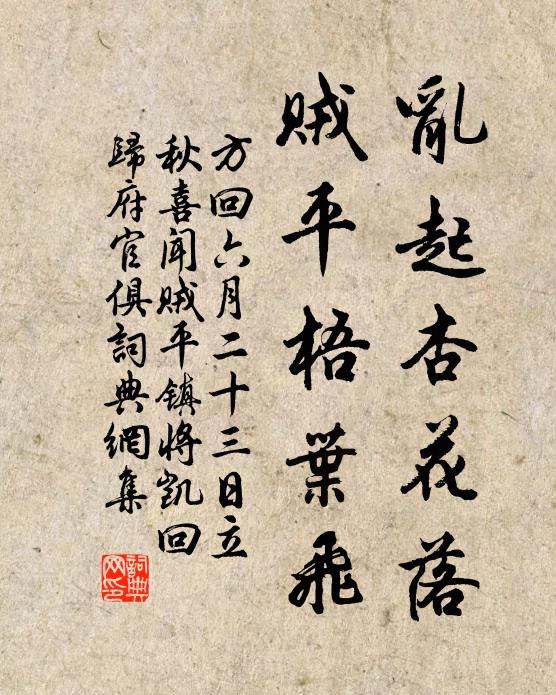 亂起杏花落
賊平梧葉飛
方回六月二十三日立
秋喜聞賊平鎮將凱回
歸府官俱詞典網集
詞典
网印